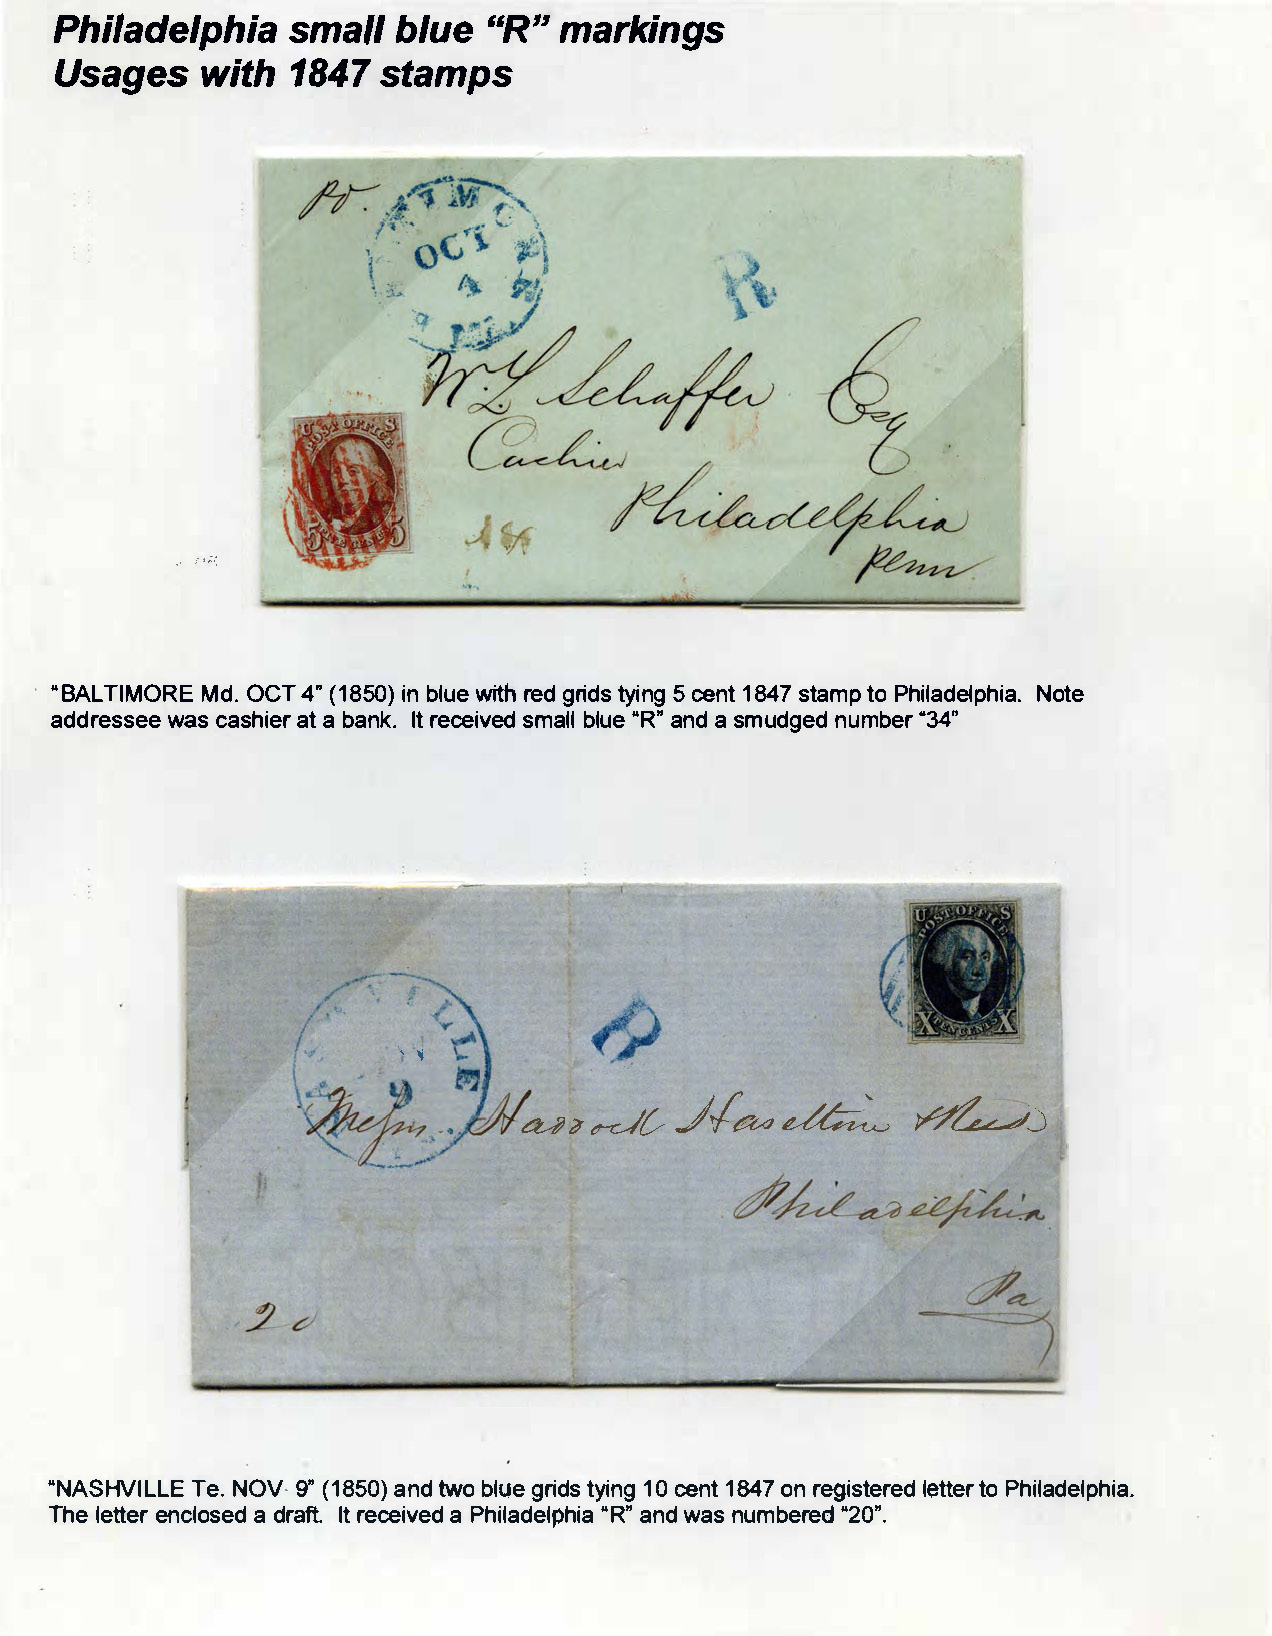 Philadelphia small blue “R” markings
Usages with 1847 stamps
Pd.
BALTIMORE
OCT
4
Md.
R
W. L. Schaffer Esq
Cashier
Philadelphia
Penn
U S
POST OFFICE
5 FIVE CENTS 5
“BALTIMORE Md. OCT 4” (1850) in blue with red grids tying 5 cent 1847 stamp to Philadelphia. Note
addressee was cashier at a bank. It received small blue “R” and a smudged number “34”
U S
POST OFFICE
X TEN CENTS X
NASHVILLE
9
R
Messrs. Haddock Haseltine & Reed
Philadelphia
Pa
20
“NASHVILLE Te. NOV 9” (1850) and two blue grids tying 10 cent 1847 on registered letter to Philadelphia.
The letter enclosed a draft. It received a Philadelphia “R” and was numbered “20”.